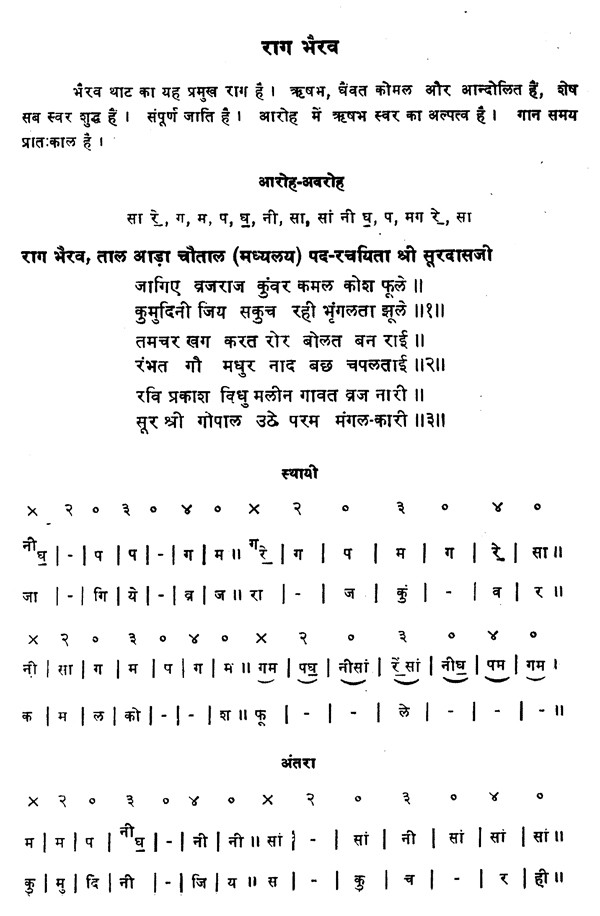 राग भैरव
भैरव थाट का यह प्रमुख राग है। ऋषभ, धैवत कोमल और आन्दोलित हैं, शेष
सब स्वर शुद्ध हैं। संपूर्ण जाति है। आरोह में ऋषभ स्वर का अल्पत्व है। गान समय
प्रातःकाल है।
आरोह-अवरोह
सा रे॒, ग, म, प, ध॒, नी, सा, सां नी ध॒, प, मग रे॒, सा
राग भैरव, ताल आड़ा चौताल (मध्यलय) पद-रचयिता श्री सूरदासजी
जागिए व्रजराज कुंवर कमल कोश फूले ॥
कुमुदिनी जिय सकुच रही भृंगलता झूले ॥१॥
तमचर खग करत रोर बोलत बन राई ॥
रंभत गौ मधुर नाद बछ चपलताई ॥२॥
रवि प्रकाश विधु मलीन गावत व्रज नारी ॥
सूर श्री गोपाल उठे परम मंगल-कारी ॥३॥
स्थायी
× २ ० ३ ० ४ ० × २ ० ३ ० ४ ०
नीध॒ | - | प प | - | ग | म ॥ गरे॒ | ग | प | म | ग | रे॒ | सा ॥
जा | - | गि | ये | - | व्र | ज ॥ रा | - | ज | कुं | - | व | र ॥
× २ ० ३ ० ४ ० × २ ० ३ ० ४ ०
नी़ | सा | ग | म | प | ग | म ॥ गम | पध॒ | नीसां | रें॒सां | नीध॒ | पम | गम ।
क | म | ल | को | - | - | श ॥ फू | - | - | ले | - | - | - ॥
अंतरा
× २ ० ३ ० ४ ० × २ ० ३ ० ४ ०
म | म | प | नीध॒ | - | नी | नी ॥ सां | - | सां | नी | सां | सां | सां ॥
कु | मु | दि | नी | - | जि | य ॥ स | - | कु | च | - | र | ही ॥